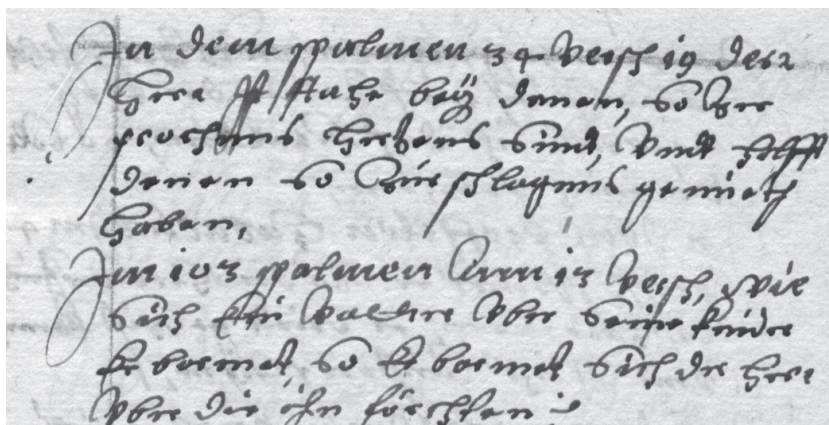 In dem psalmen 34 versch 19 derr
Herr ist nahe beÿ denen, so zer
prochens hertzens sindt, vndt hilfft
denen so zürschlagnns gemüeth
haben,
Im 103 psalmen Am 13 versch, wie
sich Ein Vatter vber seine kinder
Erbarmet, so Erbarmet sich der Herr
vber die ihn förchten